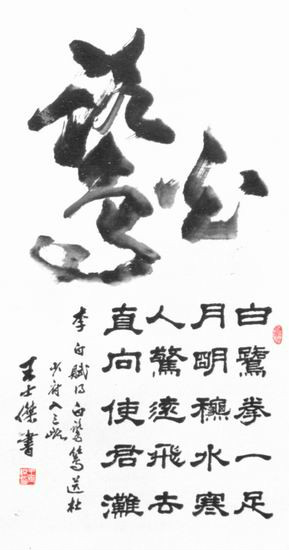 白鷺
白鷺拳一足
月明穐水寒
人驚遠飛去
直向使君灘
李白賦得白鷺鷥送杜
少府入三峽
王士傑書